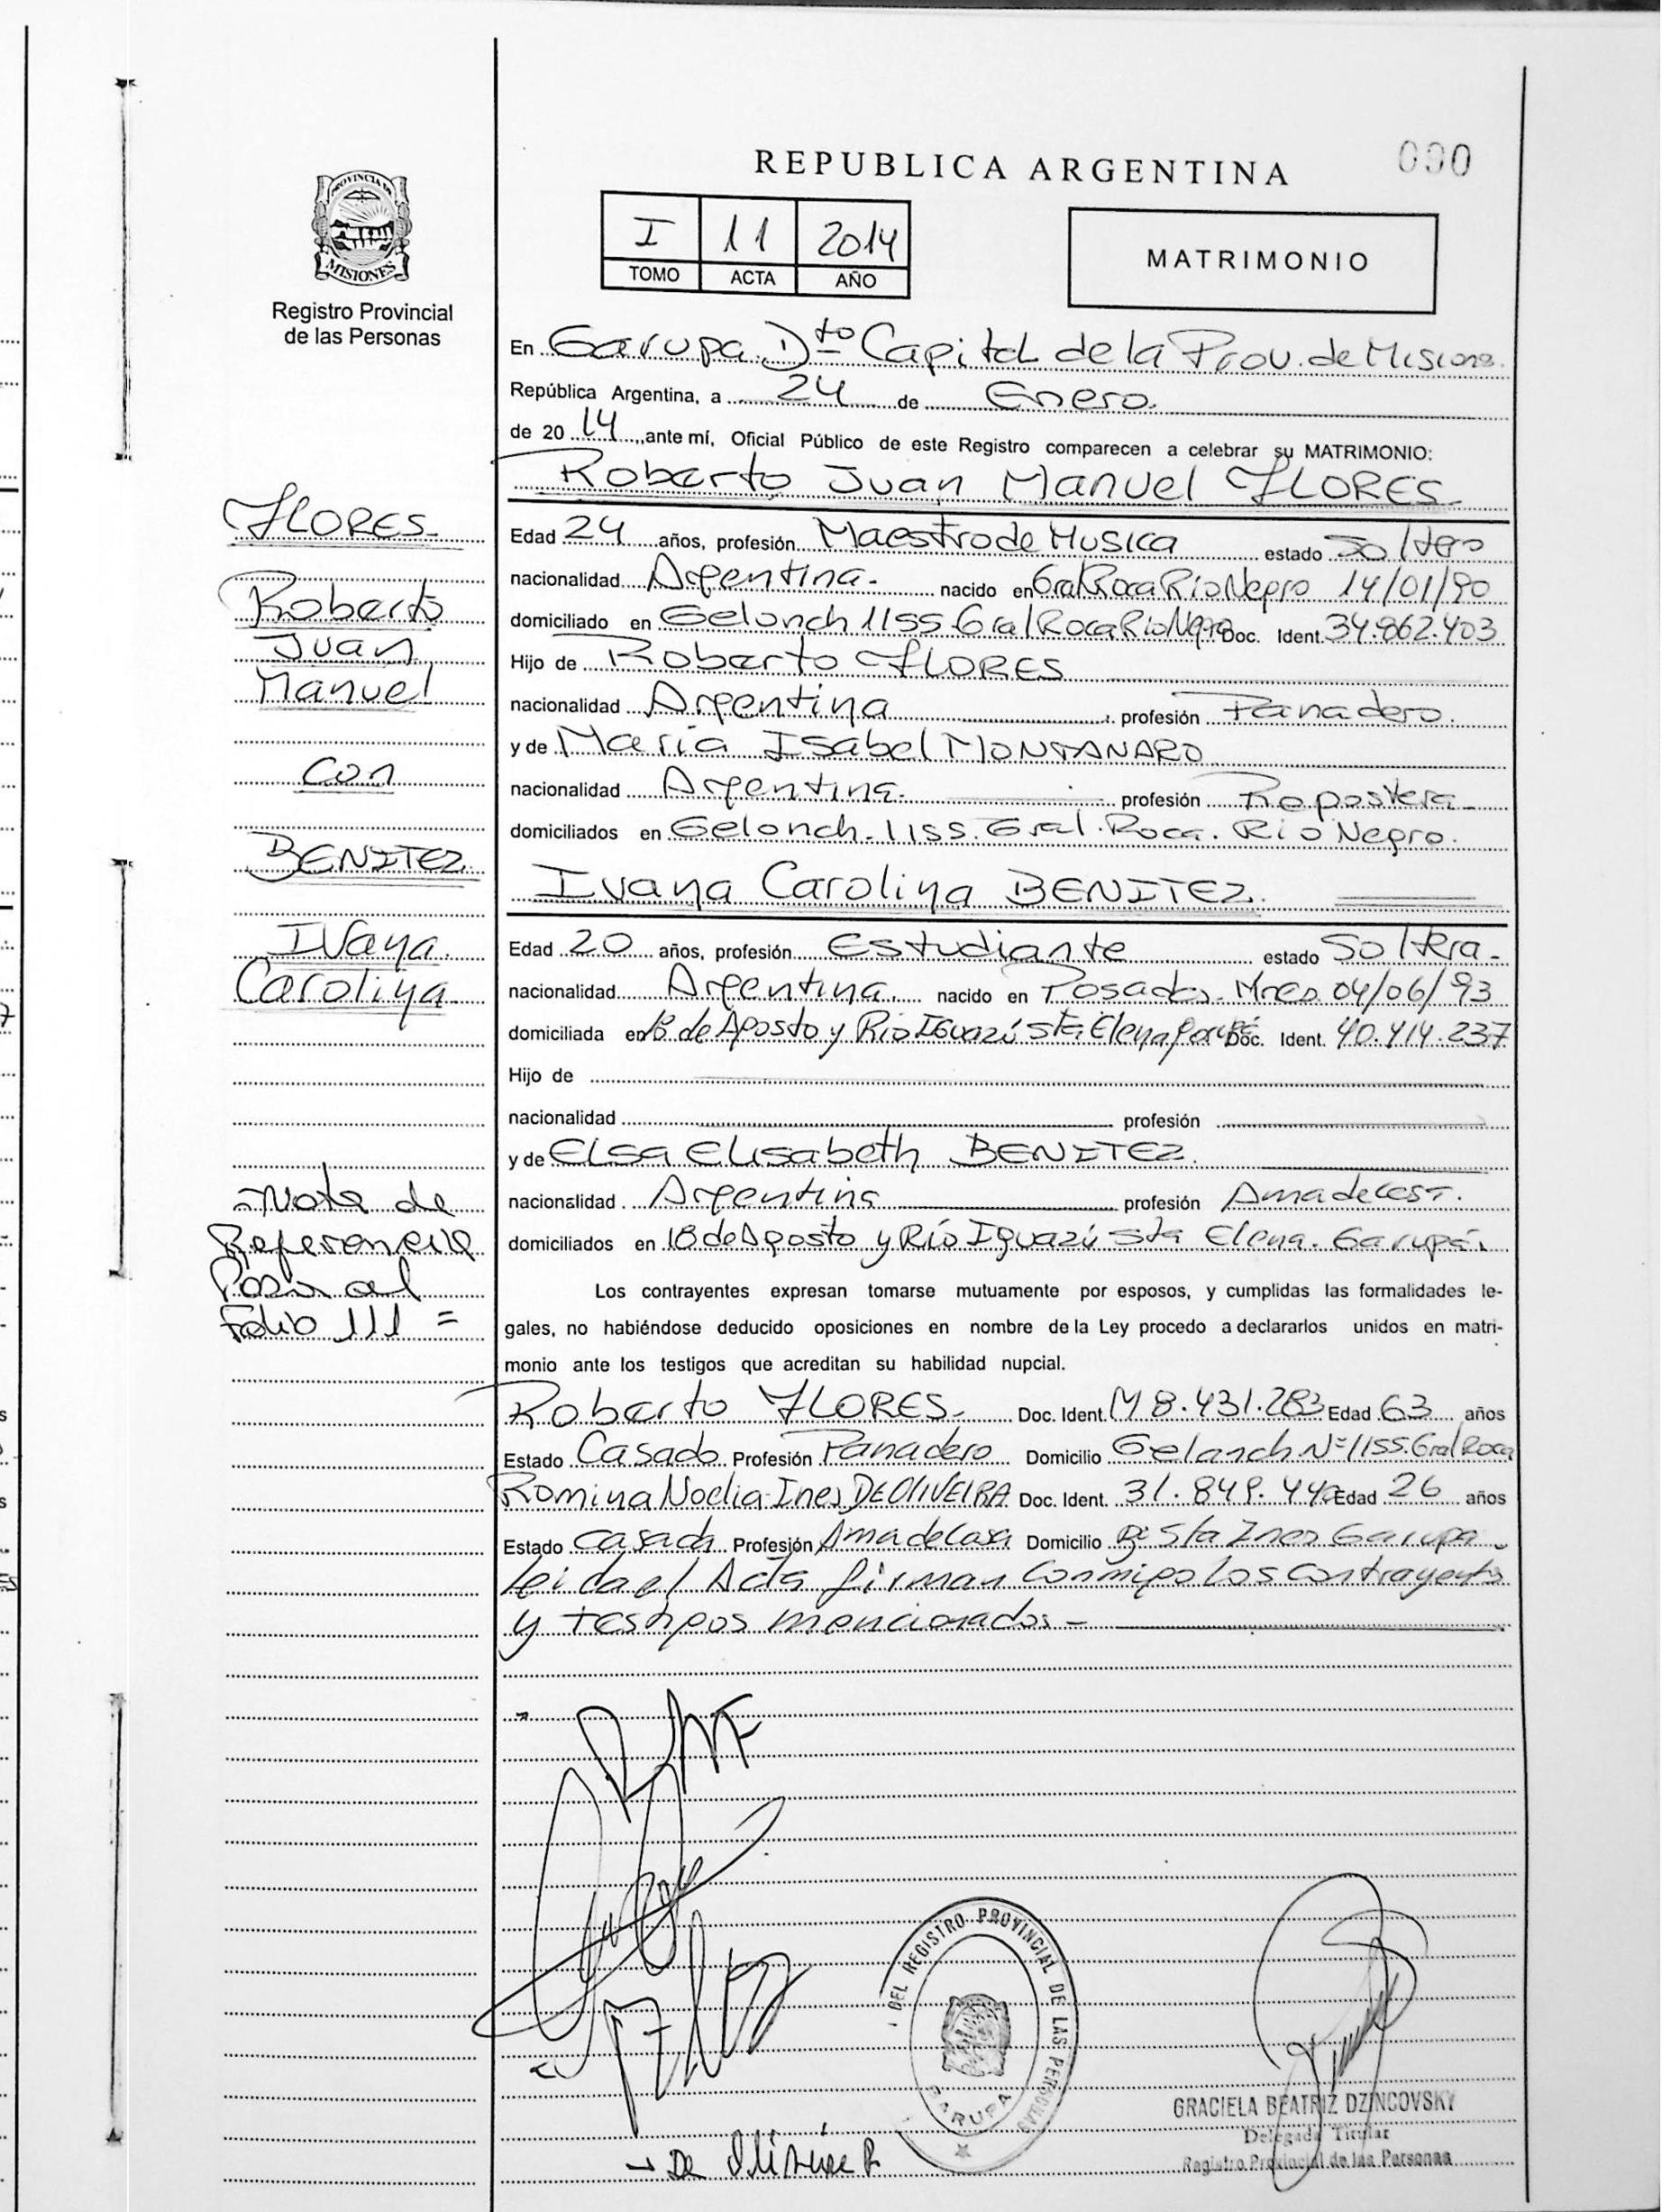 REPUBLICA ARGENTINA
000
PROVINCIA DE
MISIONES
Registro Provincial
de las Personas
I 11 2014
TOMO ACTA AÑO
MATRIMONIO
En Garupa Dto Capital de la Prov. de Misiones.
República Argentina, a 24 de Enero.
de 20 14, ante mí, Oficial Público de este Registro comparecen a celebrar su MATRIMONIO:
Roberto Juan Manuel FLORES
Edad 24 años, profesión Maestro de Musica estado Soltero
nacionalidad Argentina. nacido en Gral Roca Rio Negro 14/01/90
domiciliado en Gelonch 1155 Gral Roca Rio Negro Doc. Ident. 34.862.403
Hijo de Roberto FLORES
nacionalidad Argentina profesión Panadero.
y de Maria Isabel MONTANARO
nacionalidad Argentina. profesión Repostera
domiciliados en Gelonch. 1155. Gral. Roca. Rio Negro.
Ivana Carolina BENITEZ.
Edad 20 años, profesión Estudiante estado Soltera
nacionalidad Argentina. nacido en Posadas. Mnes 04/06/93
domiciliada en 18 de Agosto y Rio Iguazú Sta Elena Garupá Doc. Ident. 40.414.237
Hijo de
nacionalidad profesión
y de Elsa Elisabeth BENITEZ.
nacionalidad Argentina profesión Ama de casa.
domiciliados en 18 de Agosto y Río Iguazú Sta Elena. Garupá.
Los contrayentes expresan tomarse mutuamente por esposos, y cumplidas las formalidades le-
gales, no habiéndose deducido oposiciones en nombre de la Ley procedo a declararlos unidos en matri-
monio ante los testigos que acreditan su habilidad nupcial.
Roberto FLORES Doc. Ident. M 8.431.283 Edad 63 años
Estado Casado Profesión Panadero Domicilio Gelonch Nº 1155. Gral Roca
Romina Noelia Ines DE OLIVEIRA Doc. Ident. 31.849.442 Edad 26 años
Estado Casada Profesión Ama de Casa Domicilio Bº Sta Ines Garupa
Leida el Acta firman conmigo los contrayentes
y testigos mencionados
FLORES
Roberto
Juan
Manuel
con
BENITEZ
Ivana
Carolina
Nota de
Referencia
Pasa al
Folio 111 =
DEL REGISTRO PROVINCIAL DE LAS PERSONAS
GARUPA
De Oliveira R
GRACIELA BEATRIZ DZINCOVSKY
Delegada Titular
Registro Provincial de las Personas